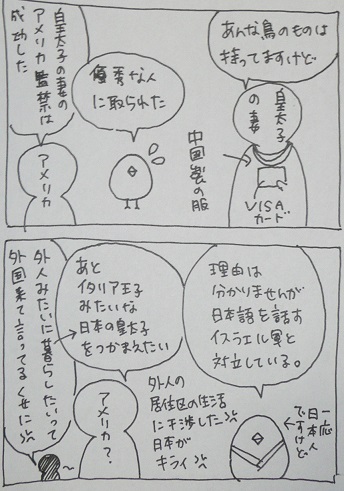 あんな鳥のものは
持ってますけど
皇太子
の妻
VISA
カード
中国製の服
優秀な人
に取られた
皇太子の妻の
アメリカ監禁は
成功した
アメリカ
理由は
分かりませんが
日本語を話す
イスラエル軍と
対立している。
一応
日本人
ですけど
外人の
居住区の生活
に干渉した
日本が
キライ
あと
イタリア王子
みたいな
日本の皇太子
をつかまえたい
アメリカ?
外人みたいに暮らしたいって
外国来て言ってるくせに